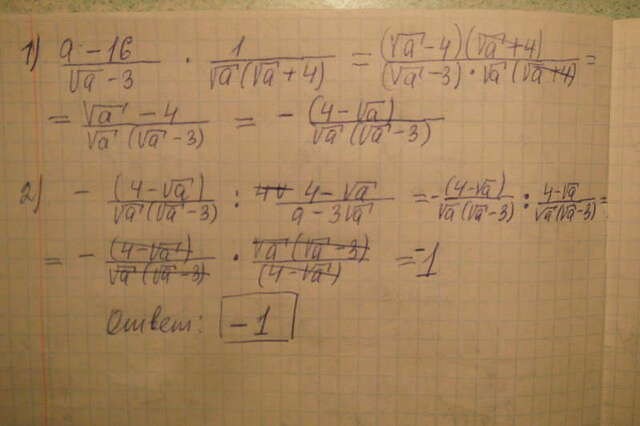 1) (a - 16)/(√a - 3) · 1/(√a (√a + 4)) = ((√a - 4)(√a + 4))/((√a - 3) · √a (√a + 4)) =
= (√a - 4)/(√a (√a - 3)) = - (4 - √a)/(√a (√a - 3))
2) - (4 - √a)/(√a (√a - 3)) : (4 - √a)/(a - 3√a) = - (4 - √a)/(√a (√a - 3)) : (4 - √a)/(√a (√a - 3)) =
= - (4 - √a)/(√a (√a - 3)) · (√a (√a - 3))/(4 - √a) = -1
Ответ: -1